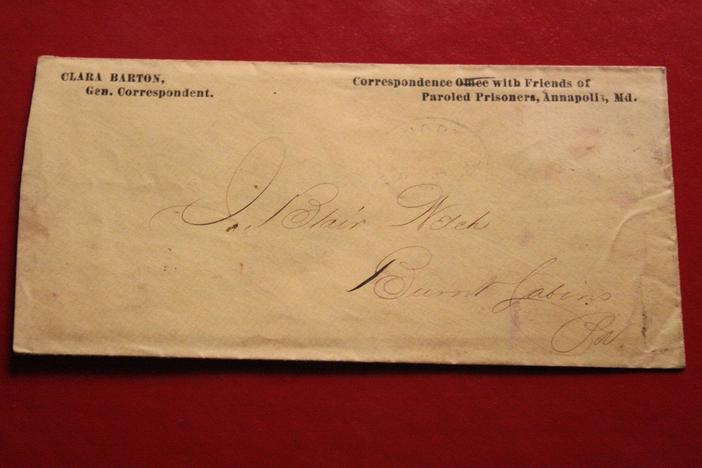 CLARA BARTON,
Gen. Correspondent.
Correspondence Office with Friends of
Paroled Prisoners, Annapolis, Md.
J. Blair
Burnt Cabins
Pa.